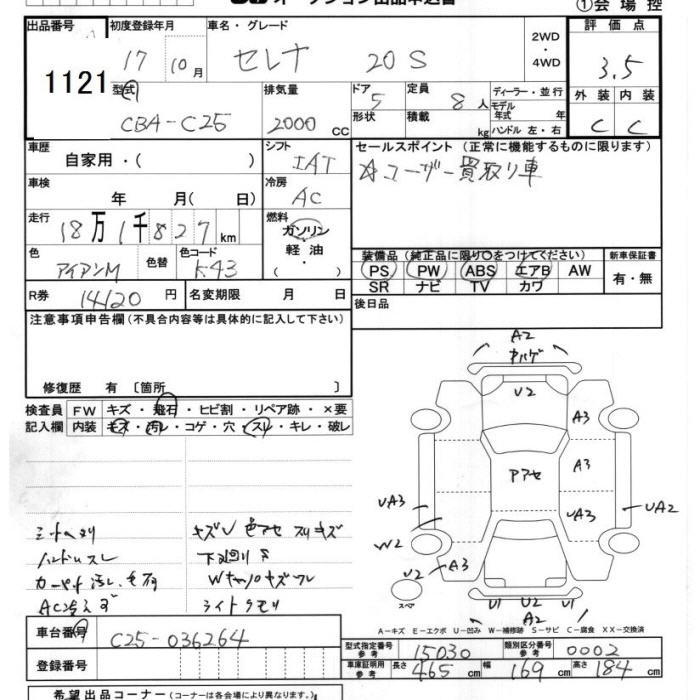 オークション出品申込書
①会場控
出品番号 初度登録年月 車名・グレード 評価点
1121 17 10月 セレナ 20S 2WD ・ 4WD 3.5
型式 排気量 ドア 5 定員 8人 ディーラー・並行 外装 内装
CBA-C25 2000 CC 形状 積載 kg モデル年式 年式 ハンドル 左・右 C C
車歴 シフト セールスポイント (正常に機能するものに限ります)
自家用・( ) IAT ☆ユーザー買取り車
車検 冷房
年 月( 日) AC
走行 燃料
18万1千827km ガソリン・
色 色替 色コード 軽油 装備品 (純正品に限り○をつけてください) 新車保証書
アイアンM K43 ( ) PS PW ABS エアB AW 有・無
SR ナビ TV カワ
R券 14120円 名変期限 月 日 後日品
注意事項申告欄 (不具合内容等は具体的に記入して下さい)
修復歴 有 〔箇所 〕
検査員 FW キズ・飛石・ヒビ割・リペア跡・×要
記入欄 内装 キズ・汚レ・コゲ・穴・スレ・キレ・破レ
A2
U2
A3
アアセ A3
UA3 UA3 UA2
W2
U2 A3
スペア
U1 U2 U1
A2
シートヘタリ キズU 色アセ スリキズ
ハンドルスレ 下廻りサ
カーペット汚レ
AC冷えず ライトクモリ
A-キズ E-エクボ U-凹み W-補修跡 S-サビ C-腐食 XX-交換済
車台番号 C25-036264
型式指定番号 参考 15030 類別区分番号 参考 0002
登録番号 車庫証明用 参考 長さ 465cm 幅 169cm 高さ 184cm
希望出品コーナー (コーナーは各会場により異なります。)